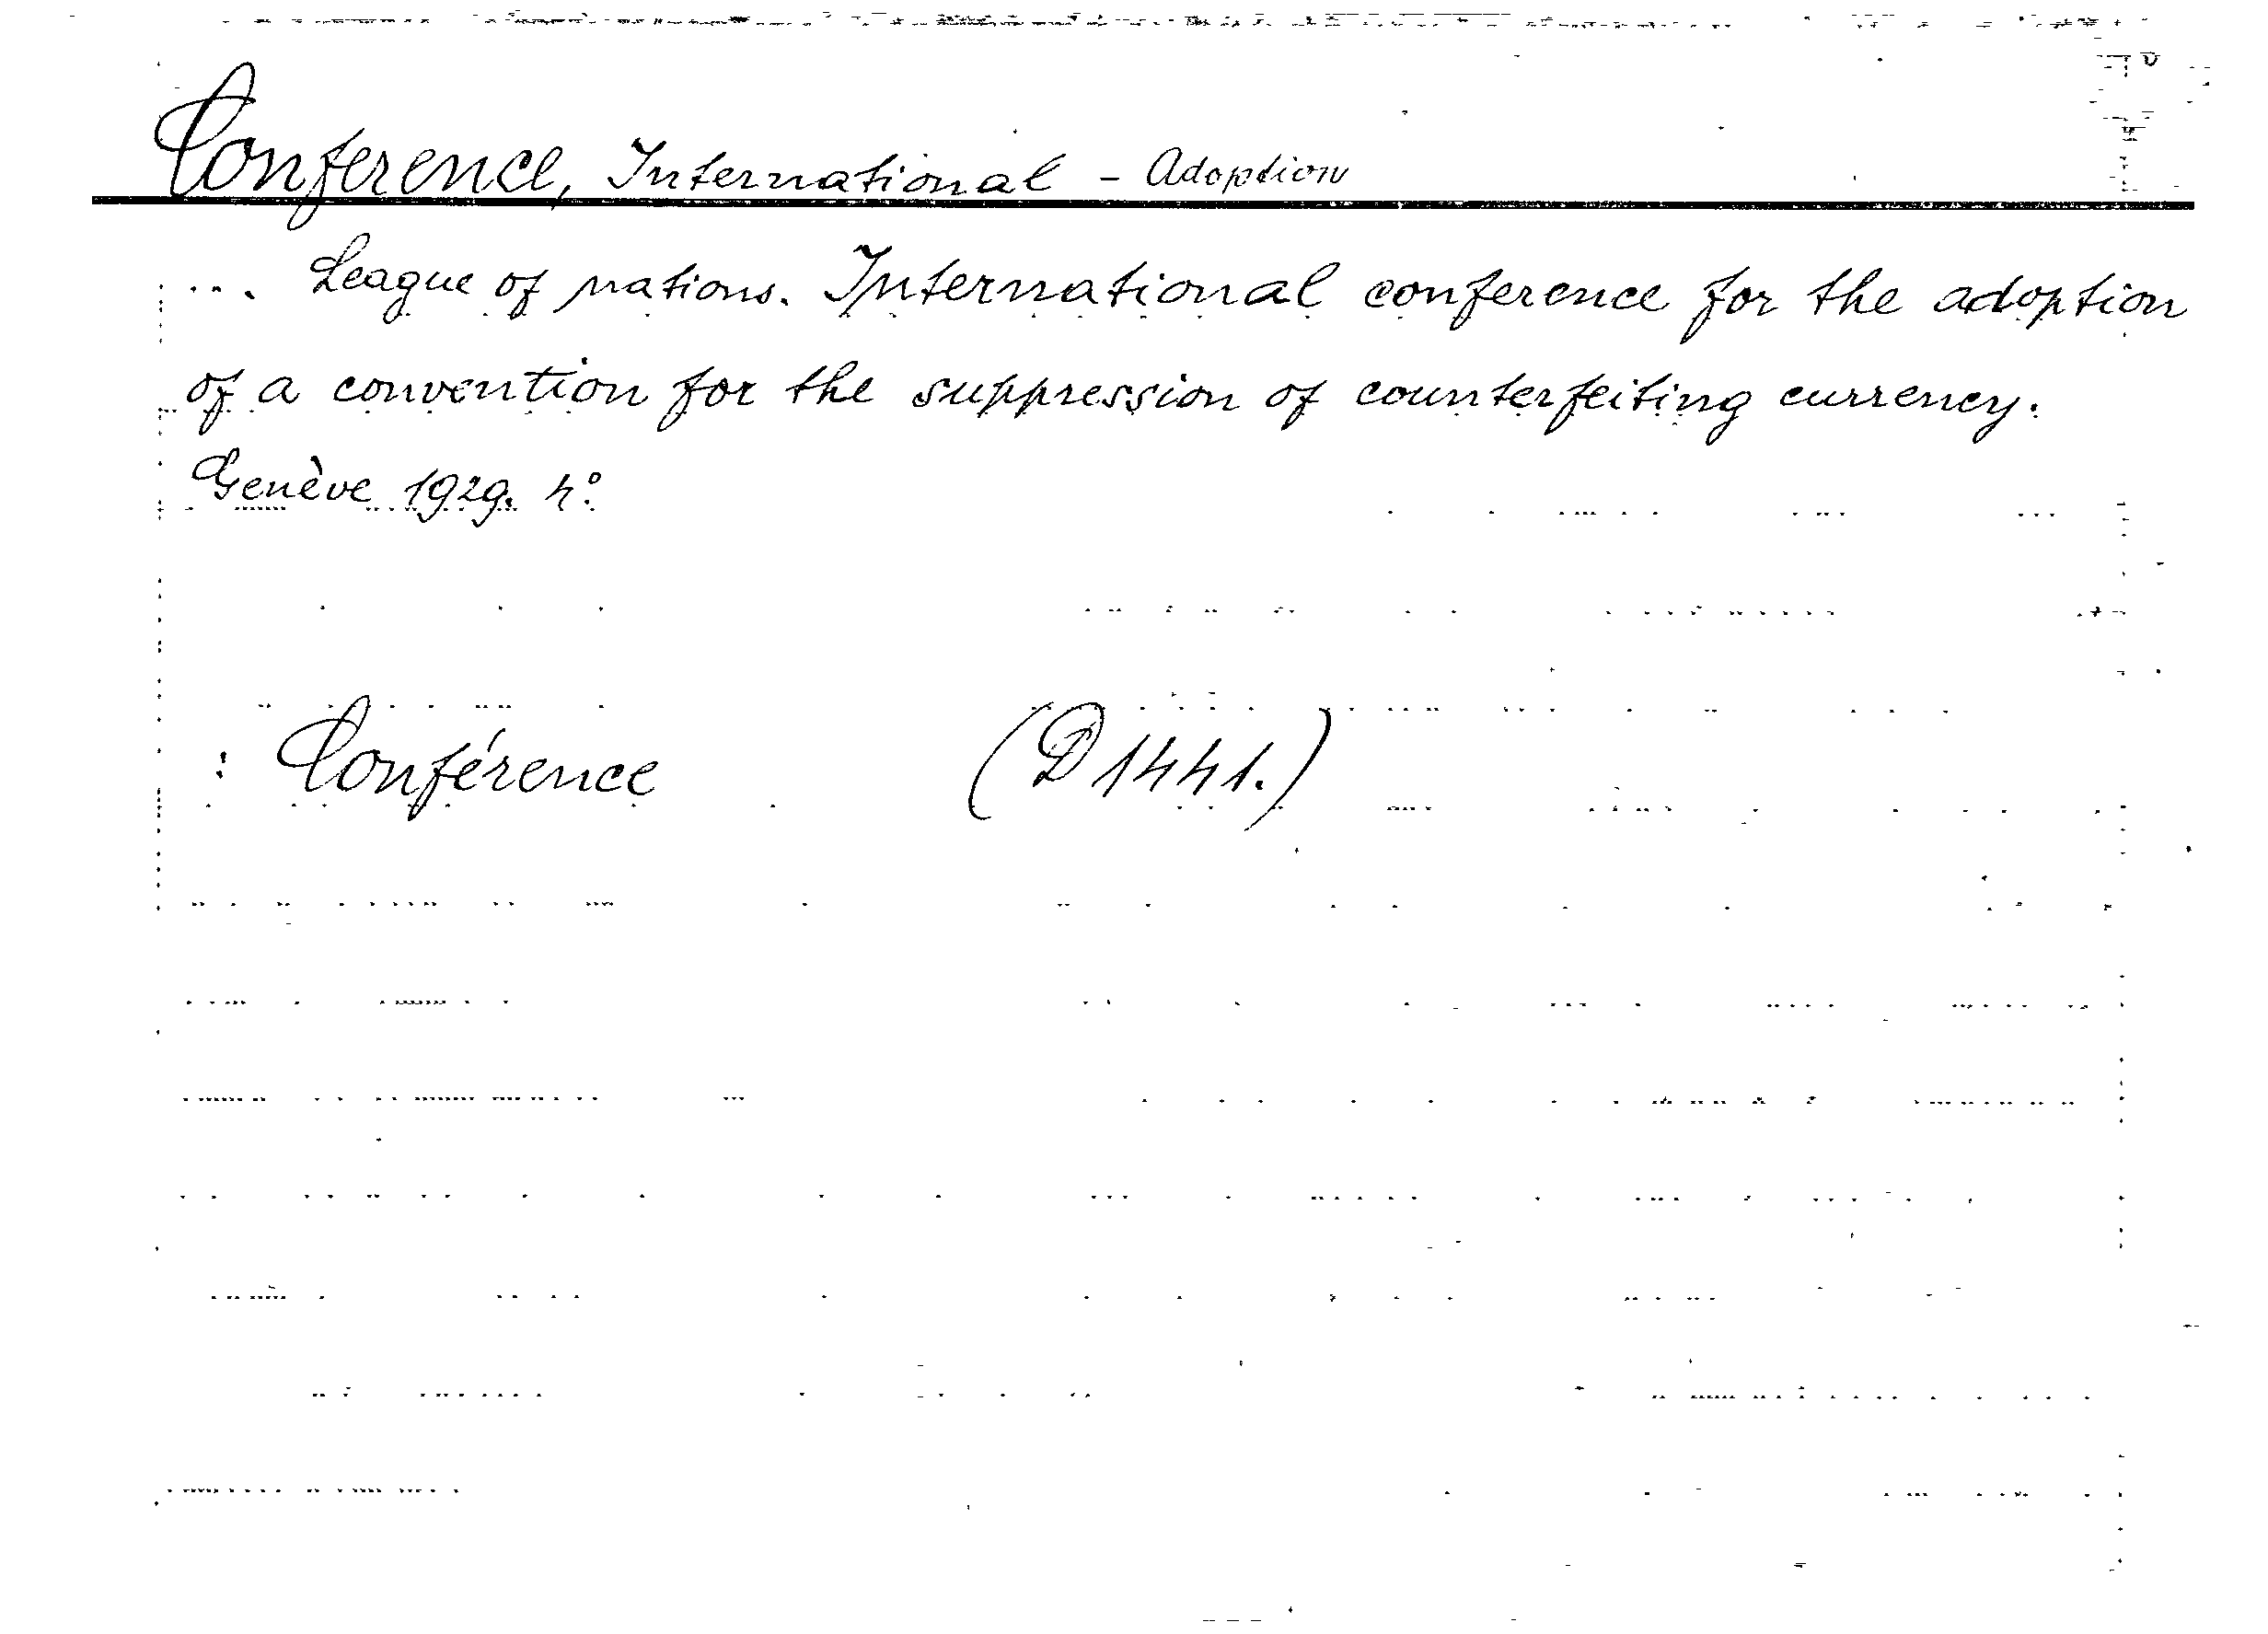 Conference, International - Adoption
... League of nations. International conference for the adoption
of a convention for the suppression of counterfeiting currency.
Genève 1929. 4°.
: Conférence (D 1441.)